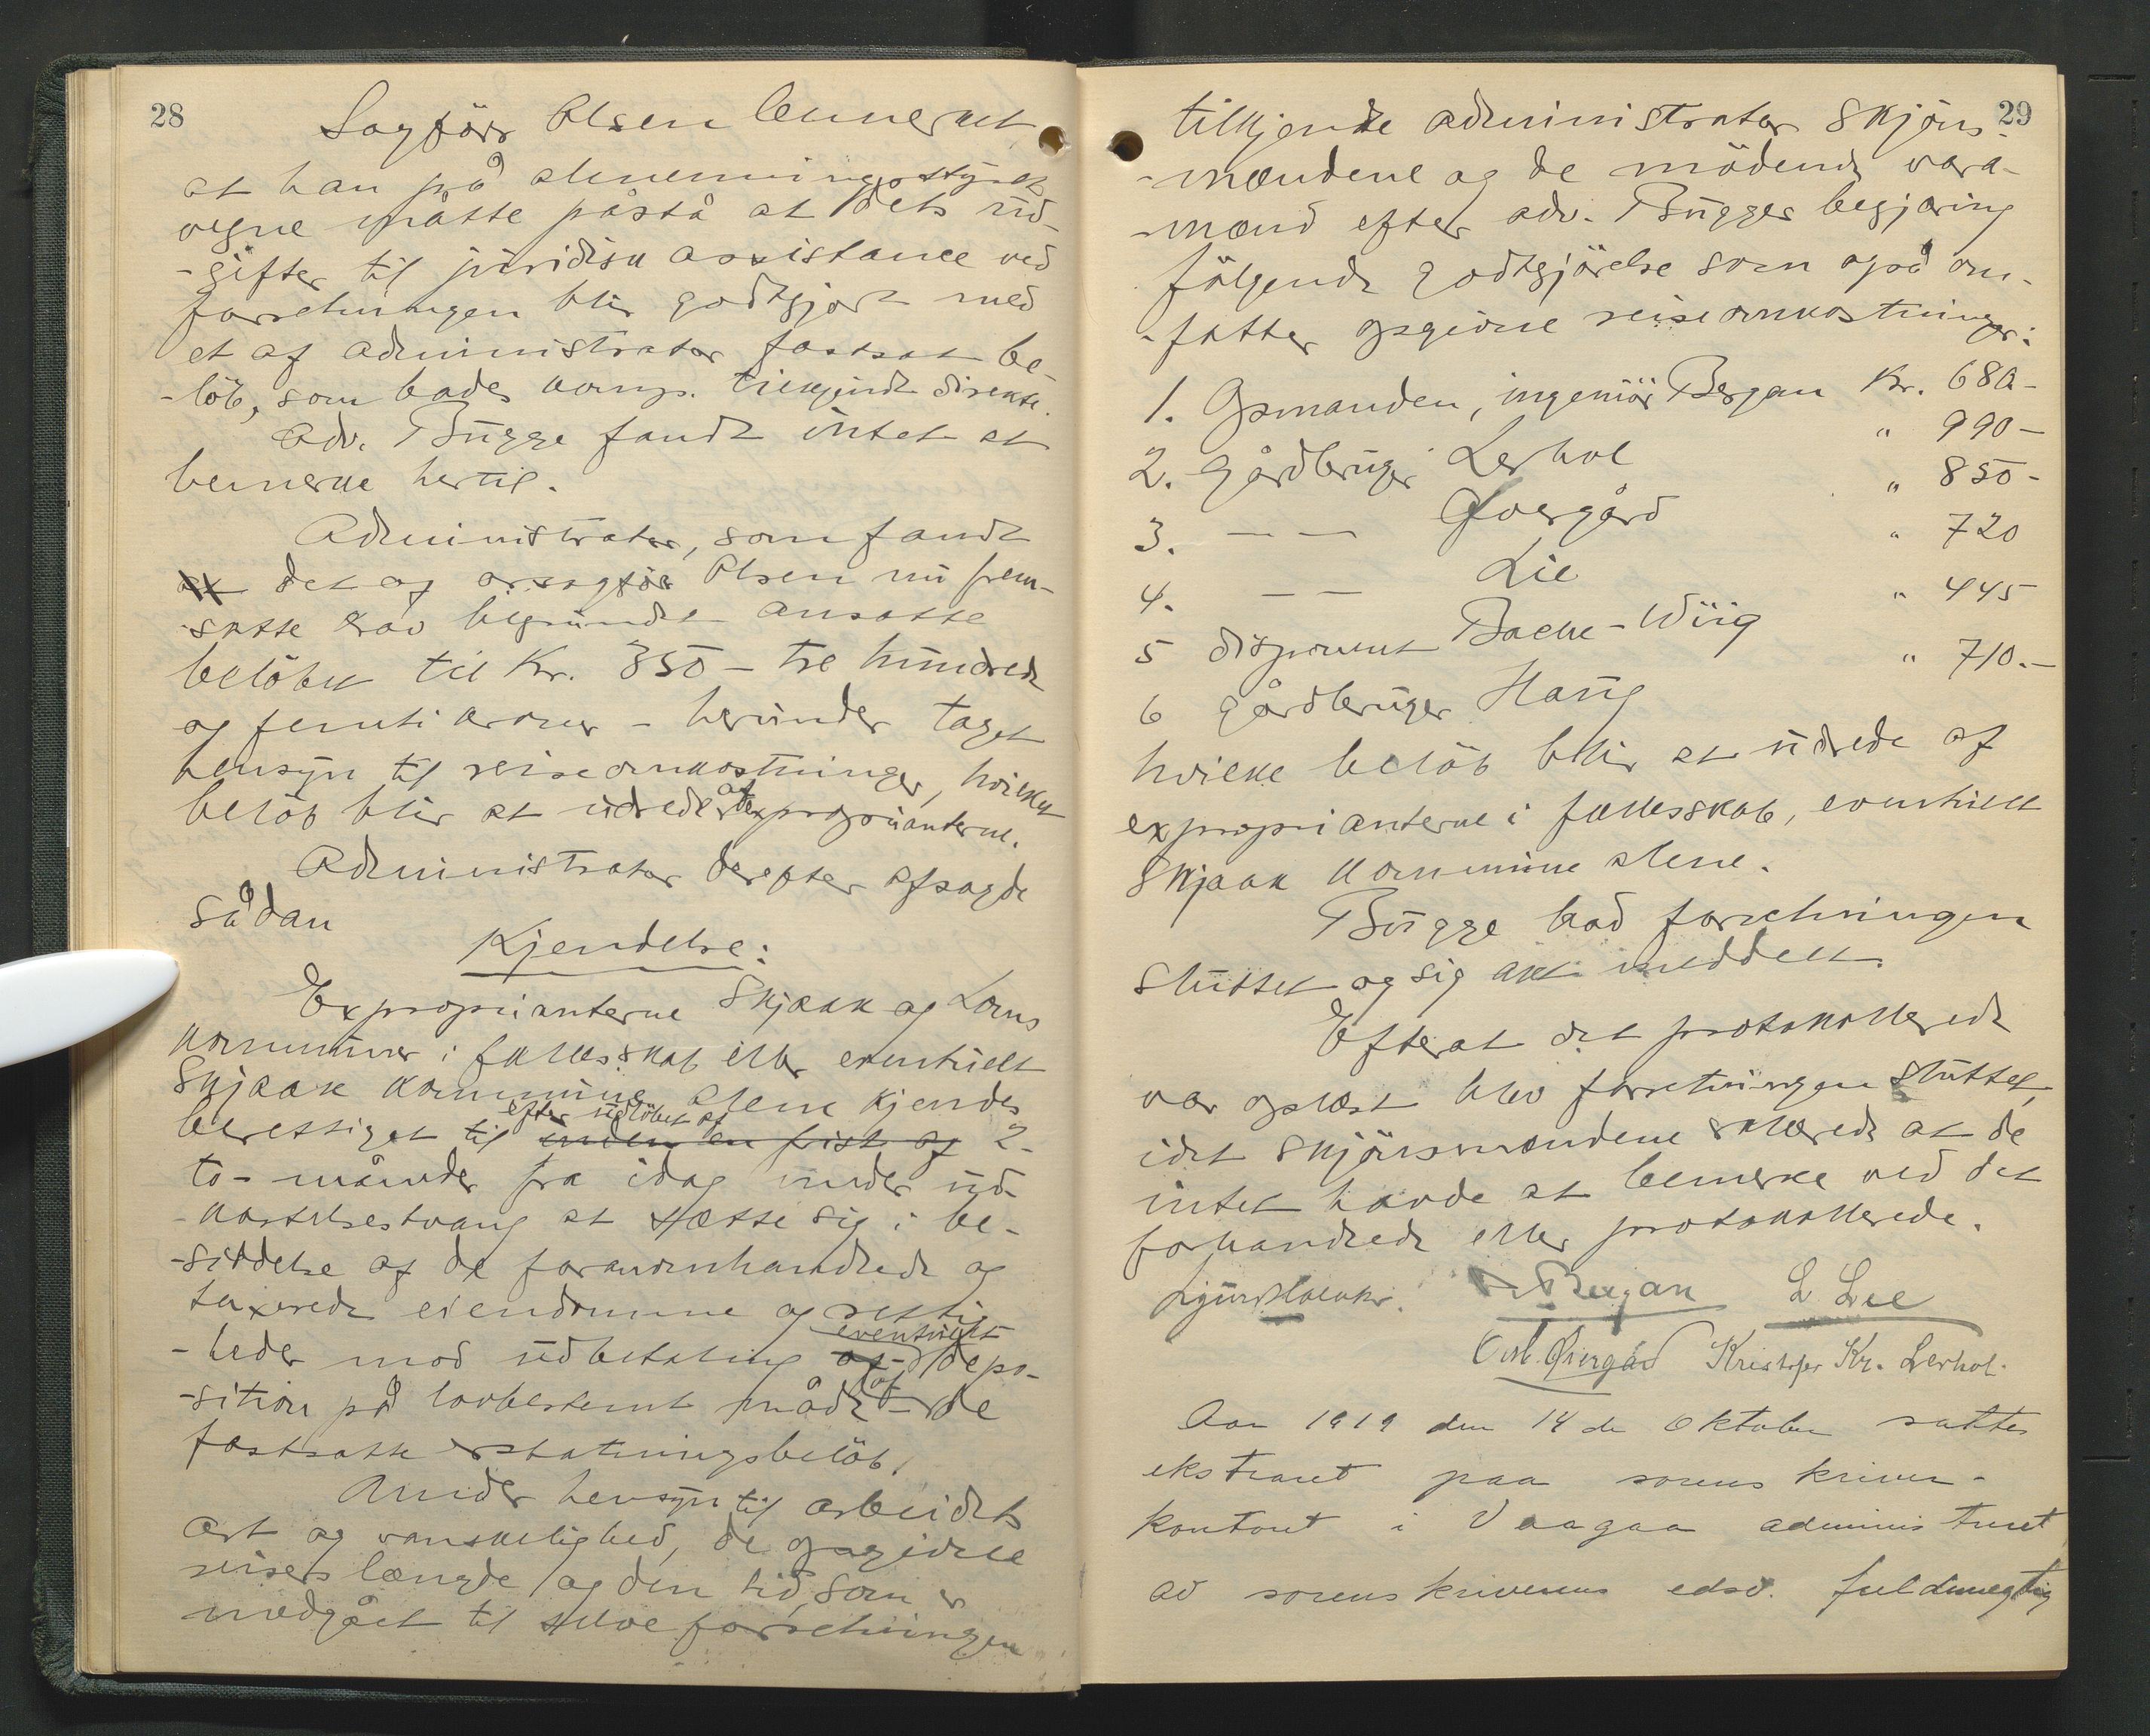 28
Sagfører Olsen bemerket
at han på almenningsstyrets
vegne måtte påstå at dets ud-
-gifter til juridisk assistance ved
forretningen blir godtgjort med
et af administrator fastsat be-
-løb, som bades komp. tilkjendt direkte.
Adv. Bugge fandt intet at
bemerke hertil.
Administrator, som fandt
det af orsagfør Olsen nu frem-
-satte krav begrundet ansatte
beløbet til Kr. 350 - tre hundrede
og femti kroner - herunder taget
hensyn til reiseomkostninger, hvilket
beløb blir at udrede af exproprianterne.
Administrator derefter afsagde
sådan
Kjendelse:
Exproprianterne Skjaak og Loms
kommuner i fællesskab eller eventuelt
Skjaak kommune alene kjendes
efter udløbet af
berettiget til inden en frist af 2-
to- måneder fra idag under ud-
-kastelsestvang at sætte sig i be-
-siddelse af de foranomhandlede og
taxerede eiendomme og rettig-
eventuelt
-heder mod udbetaling af depo-
-sition på lovbestemt måde af de
fastsatte erstatningsbeløb.
Under hensyn til arbeidets
art og vanskelighed, de opgivne
reisers længde og den tid, som er
medgået til selve forretningen
29
tilkjendte administrator skjøns-
-mændene og de mødende vara-
-mænd efter adv. Bugges begjæring
følgende godtgjørelse som også om-
-fatter opgivne reiseomkostninger:
1. Opmanden, ingeniør Bergan Kr. 680-
2. Gårdbruger Lerhol " 990-
3. — — Øvergård " 850-
4. — — Lie " 720
5 disponent Bache-Wiig " 445
6 gårdbruger Haug " 710.-
hvilke beløb blir at udrede af
exproprianterne i fællesskab, eventuelt
Skjaak kommune alene.
Bugge bad forretningen
sluttet og sig akt meddelt.
Efterat det protokollerede
var oplæst blev forretningen sluttet,
idet skjønsmændene erklærede at de
intet havde at bemerke ved det
forhandlede eller protokollerede.
Bergan L Lie
Øvergård Kristofer Kr. Lerhol.
Aar 1919 den 14 de Oktober sattes
ekstraret paa sorenskriver-
kontoret i Vaagaa administreret
av sorenskriverens edsv. fuldmægtig